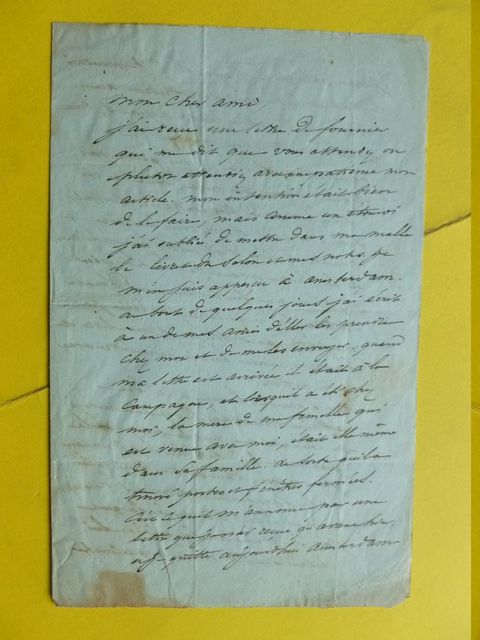 mon cher ami
j'ai recu une lettre de fournier
qui me dit que vous attendez, ou
plutot attendiez avec impatience mon
article. mon intention etait bien
de le faire, mais comme un étourdi
j'ai oublié de mettre dans ma malle
le livret du Salon et mes notes. je
m'en suis apperçu à amsterdam.
au bout de quelques jours j'ai écrit
à un de mes amis d'aller les prendre
chez moi et de me les envoyer. quand
ma lettre est arrivée il était à la
Campagne, et lorsqu'il a été chez
moi, la mère de ma femelle qui
est venue avec moi, était elle même
dans sa famille. de sorte qu'il a
trouvé portes et fenêtres fermées.
C'est ce qu'il m'annonce par une
lettre que j'ai recue
quitte aujourdhui amsterdam